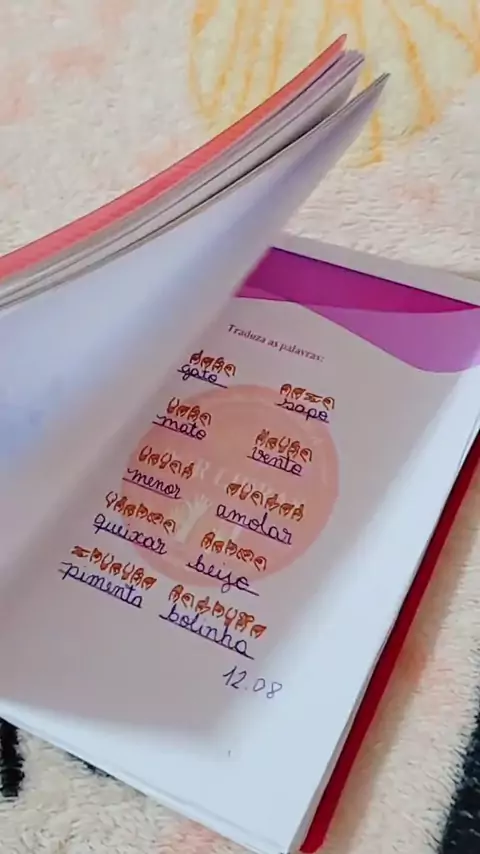 Traduza as palavras:
gato
sapo
mato
vento
menor
amolar
queixar
beijo
pimenta
bolinha
12.08